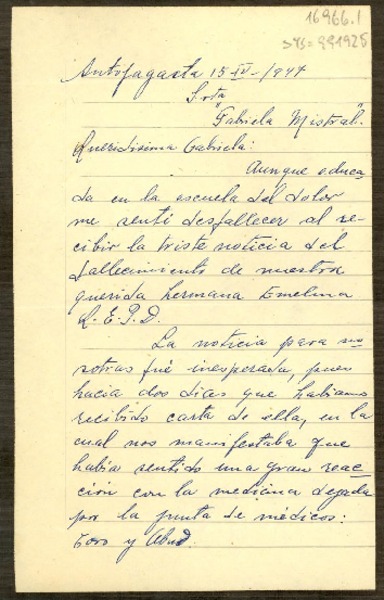 16966.1
sys=991925
Antofagasta 15-IV-/947
Srta
"Gabriela Mistral".
Queridisima Gabriela:
Aunque educa-
da en la escuela del dolor
me sentí desfallecer al re-
cibir la triste noticia del
fallecimiento de nuestra
querida hermana Emelina
Q. E. P. D.
La noticia para no-
sotras fué inesperada, pues
hacía dos dias que habíamos
recibido carta de ella, en la
cual nos manifestaba que
había sentido una gran reac-
ción con la medicina dejada
por la junta de médicos:
Toro y Abud.